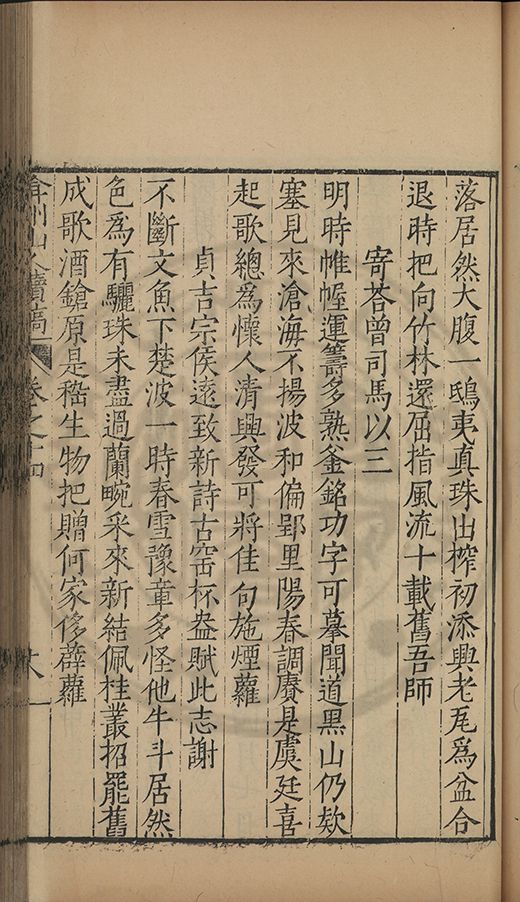 落居然大腹一鴟夷真珠出榨初添興老瓦為盆合
退時把向竹林還屈指風流十載舊吾師
寄荅曾司馬以三
明時帷幄運籌多熟釜銘功字可摹聞道黑山仍欵
塞見來滄海不揚波和偏郢里陽春調賡是虞廷喜
起歌總為懷人清興發可將佳句施煙蘿
貞吉宗侯遠致新詩古窑杯盎賦此志謝
不斷文魚下楚波一時春雪豫章多怪他牛斗居然
色為有驪珠未盡過蘭畹采來新結佩桂叢招罷舊
成歌酒鎗原是嵇生物把贈何家侈薜蘿
弇州山人續稿 卷之十四